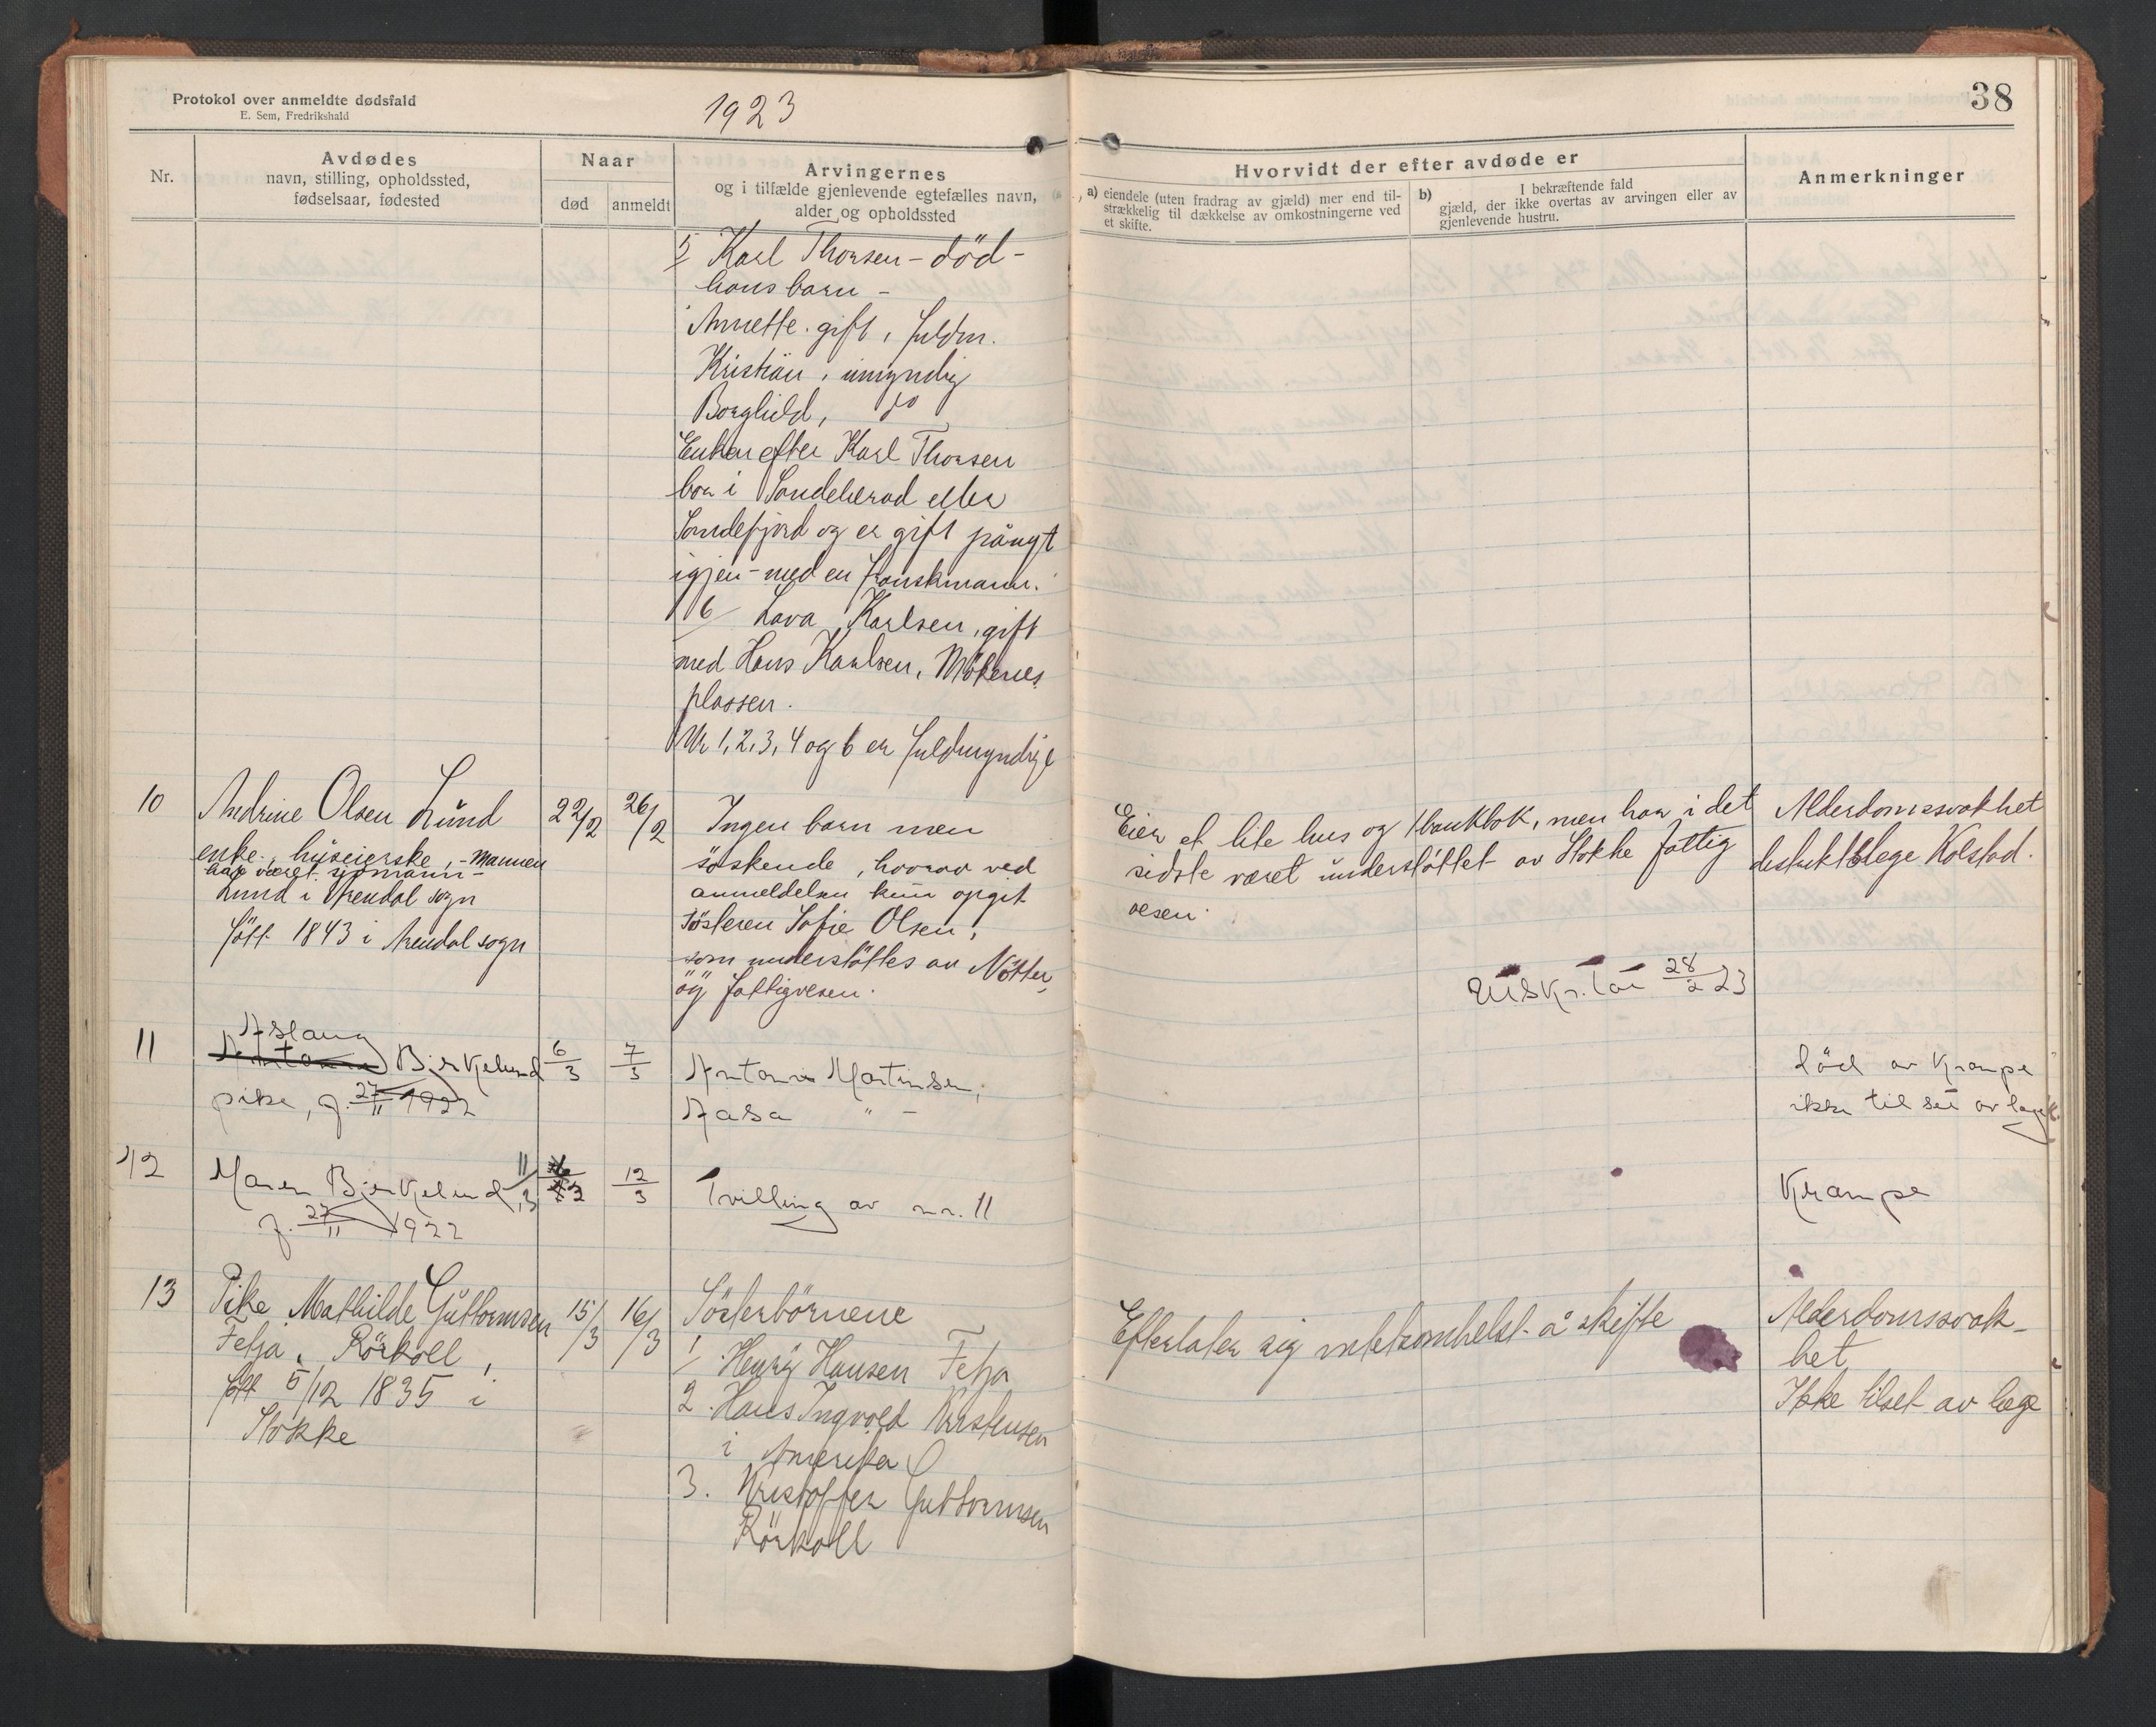 Protokol over anmeldte dødsfald
E. Sem, Fredrikshald
1923
38
Nr.
Avdødes
navn, stilling, opholdssted,
fødselsaar, fødested
Naar
død
anmeldt
Arvingernes
og i tilfælde gjenlevende egtefælles navn,
alder og opholdssted
Hvorvidt der efter avdøde er
a) eiendele (uten fradrag av gjæld) mer end til-
strækkelig til dækkelse av omkostningerne ved
et skifte.
b) I bekræftende fald
gjæld, der ikke overtas av arvingen eller av
gjenlevende hustru.
Anmerkninger
5 Karl Thorsen - död -
hans barn -
Annette . gift , fuldm.
Kristian , umyndig
Borghild, do
Enken efter Karl Thorsen
bor i Sandeherad eller
Sandefjord og er gift pånyt
igjen - med en franskmann.
6 Lava Karlsen, gift
med Hans Karlsen, Mökenes
plassen.
Nr 1, 2, 3, 4 og 6 er fuldmyndige
10
Andrine Olsen Lund
enke, huseierske, - Mannen
har været sjömann -
Lund i Arendal sogn
født 1843 i Arendal sogn
22/2
26/2
Ingen barn men
söskende, hvorav ved
anmeldelsen kun opgit
sösteren Sofie Olsen,
som understöttes av Nötter
öy fattigvesen.
Eier et lite hus og 1 bankbok, men har i det
sidste været understöttet av Stokke fattig
vesen.
Utskr. tat 28/2 23
Alderdomssvakhet
distriktslege Kolstad.
11
Aslaug
Antona Bjerkelund
pike, f. 27/11 1922
6/3
7/3
Anton Martinsen,
Aasa " -
död av Krampe
ikke til set av læge
12
Maren Bjerkelund
f. 27/11 1922
11/3
12/3
Tvilling av nr. 11
Krampe
13
Pike Mathilde Guttormsen
Fetja, Rörkoll,
født 5/12 1835 i
Stokke
15/3
16/3
Sösterbörnene
1 Henry Hansen Fetja
2. Hans Ingvold Kristensen
i Amerika
3. Kristoffer Guttormsen
Rörkoll
Efterlater sig intetsomhelst å skifte
Alderdomssvak-
het
Ikke tilset av læge